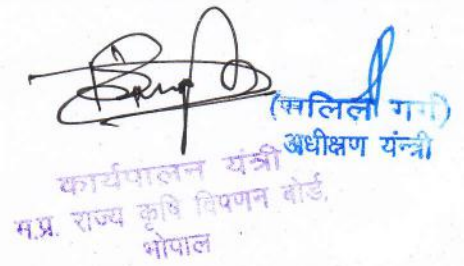 (सलिल गर्ग)
अधीक्षण यंत्री
कार्यपालन यंत्री
म.प्र. राज्य कृषि विपणन बोर्ड,
भोपाल